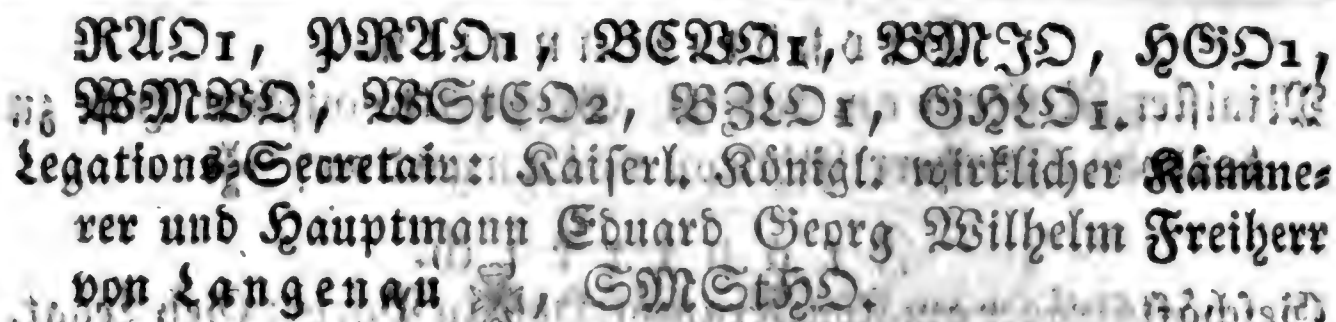 RAO1, PRAO1, BCVO1, BMJO, HGO1,
WMVO, WStEO2, BZLO1, GHLO1.
Legations-Secretair: Kaiserl. Königl. wirklicher Kämme-
rer und Hauptmann Eduard Georg Wilhelm Freiherr
von Langenau ✠, SMStHO.